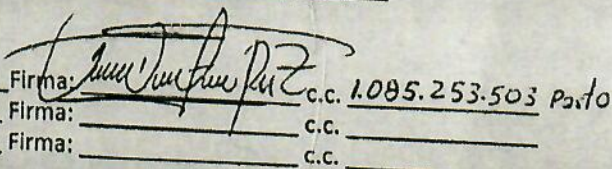 Firma: c.c. 1.085.253.503 Pasto
Firma: c.c.
Firma: c.c.